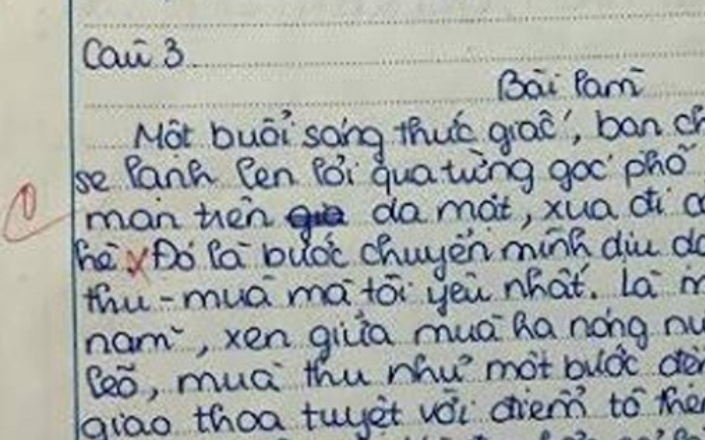 Câu 3
Bài làm
Một buổi sáng thức giấc, bạn ch
se lạnh len lỏi qua từng góc phố
mơn trên da mặt, xua đi c
hè Đó là bước chuyển mình dịu d
thu - mùa mà tôi yêu nhất. Là m
năm, xen giữa mùa hạ nóng nự
lẽo, mùa thu như một bước đệm
giao thoa tuyệt vời điểm tô thêm